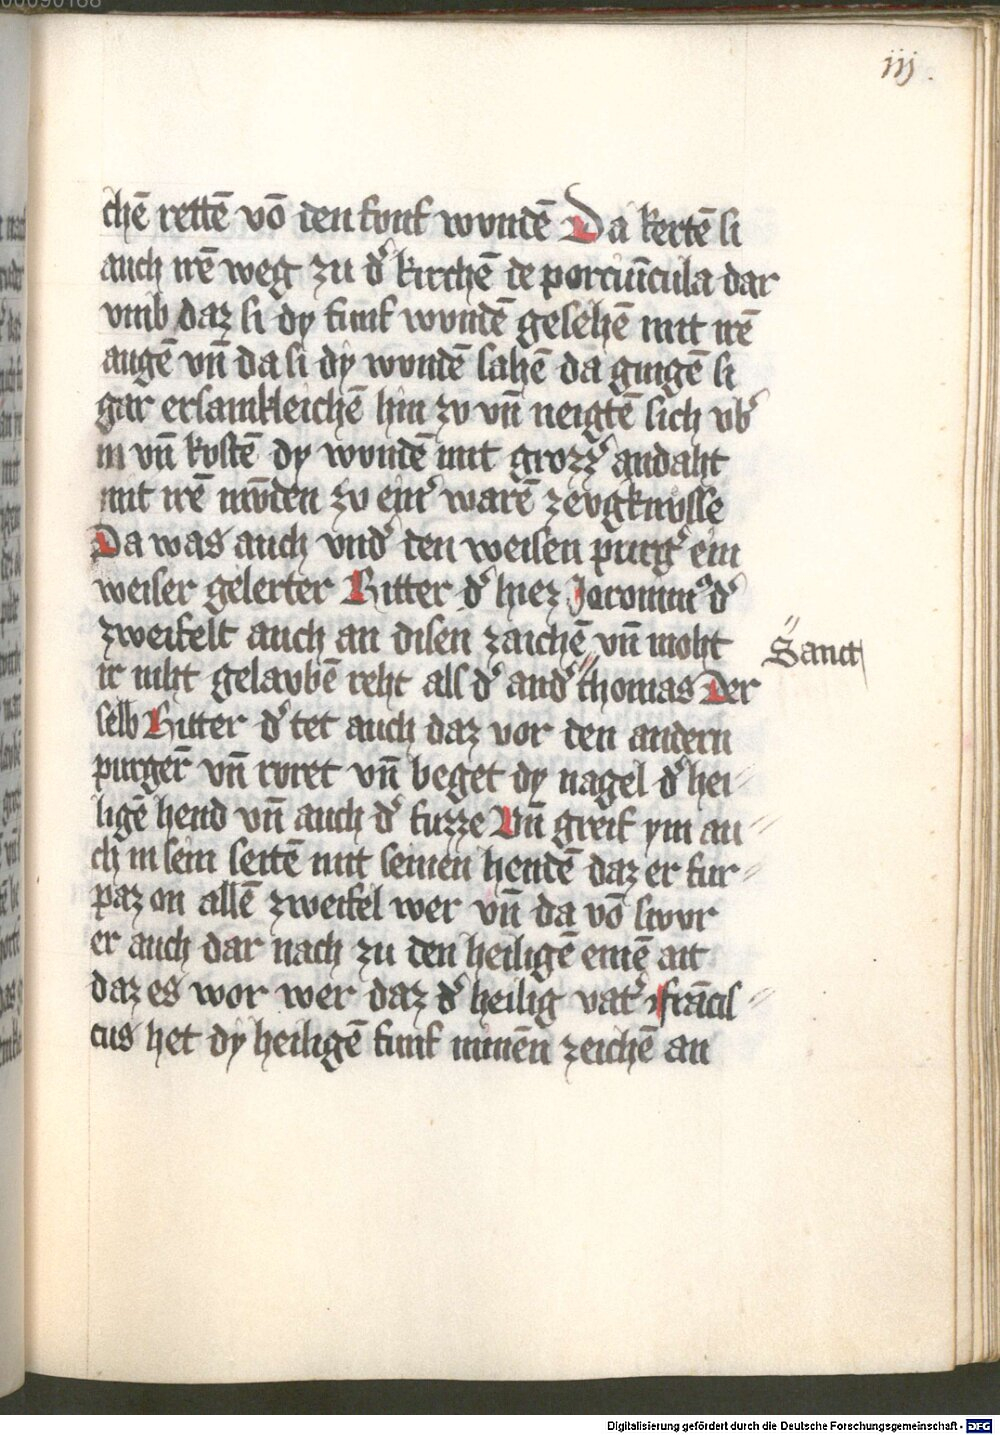 iij.
chē rettē vō den funf wundē Da kertē si
auch irē weg zu d͛ kirchē de porciūcula dar
vmb daz si dy funf wundē gesehē mit irē
augē vn̄ da si dy wundē sahē da gingē si
gar ersamkleichē hin zv vn̄ neigtē sich vb͛
in vn̄ kustē dy wundē mit grozz͛ andaht
mit irē mv̄den zv ein͛ warē zevgknvsse
Da was auch vnd͛ den weisen purg͛ ein
weiser gelerter Ritter d͛ hiez Jeronim᷒ d͛
zweifelt auch an disen zaichē vn̄ moht
Sanct
ir niht gelavbē reht als d͛ and͛ thomas Der
selb Ritter d͛ tet auch daz vor den andern
purger̄ vn̄ rvret vn̄ beget dy nagel d͛ hei
ligē hend vn̄ auch d͛ fuzze Vn̄ greif ym au
ch in sein seitē mit seinen hendē daz er fur
paz on allē zweifel wer vn̄ da vō swvr
er auch dar nach zu den heiligē einē ait
daz es wor wer daz d͛ heilig vat͛ francis
cus het dy heiligē funf minnē zeichē an
Digitalisierung gefördert durch die Deutsche Forschungsgemeinschaft - DFG